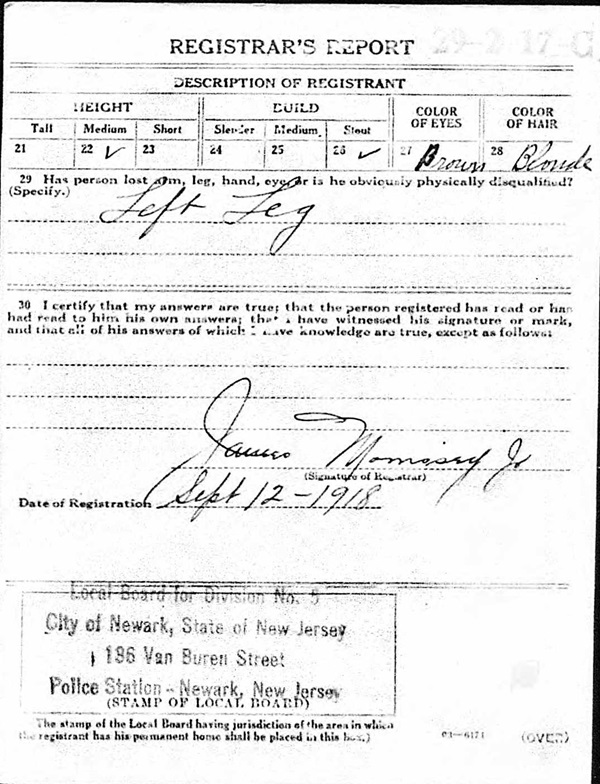 29-2-17-C
REGISTRAR'S REPORT
DESCRIPTION OF REGISTRANT
HEIGHT BUILD COLOR OF EYES COLOR OF HAIR
Tall Medium Short Slender Medium Stout
21 22 ✓ 23 24 25 26 ✓ 27 Brown 28 Blonde
29 Has person lost arm, leg, hand, eye, or is he obviously physically disqualified?
(Specify.)
Left Leg
30 I certify that my answers are true; that the person registered has read or has
had read to him his own answers; that I have witnessed his signature or mark,
and that all of his answers of which I have knowledge are true, except as follows:
James Morrissey Jr
(Signature of Registrar)
Date of Registration Sept 12-1918
Local Board for Division No. 5
City of Newark, State of New Jersey
186 Van Buren Street
Police Station - Newark, New Jersey
(STAMP OF LOCAL BOARD)
The stamp of the Local Board having jurisdiction of the area in which
the registrant has his permanent home shall be placed in this box.)
03-6171 (OVER)